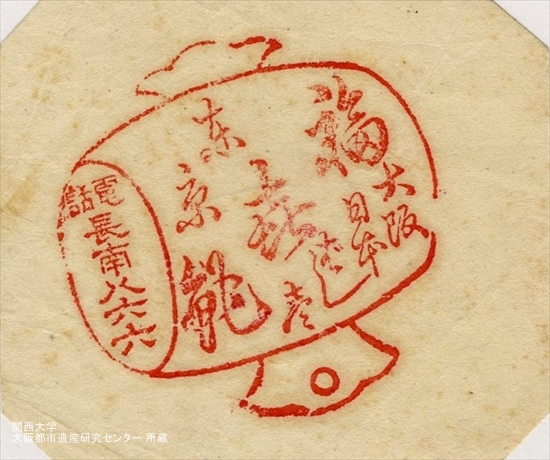 大阪
日本ばし
福喜鮓
東京
電話
長南八六六
関西大学
大阪都市遺産研究センター 所蔵